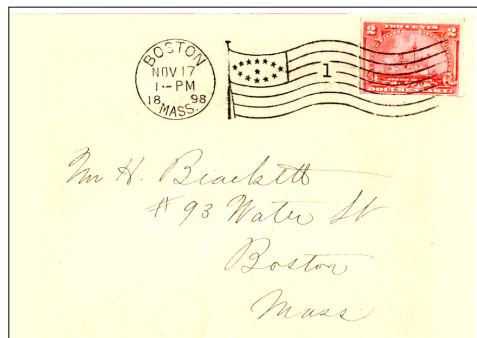 BOSTON
NOV 17
1-PM
18 98
MASS.
1
2 TWO CENTS 2
DOCUMENTARY
Mr H. Brackett
# 93 Water St
Boston
Mass.